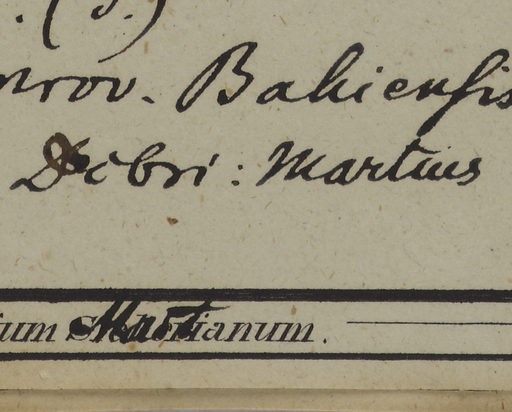 . (s.)
prov. Bahiensis
Debri: Martius
ium Martianum.